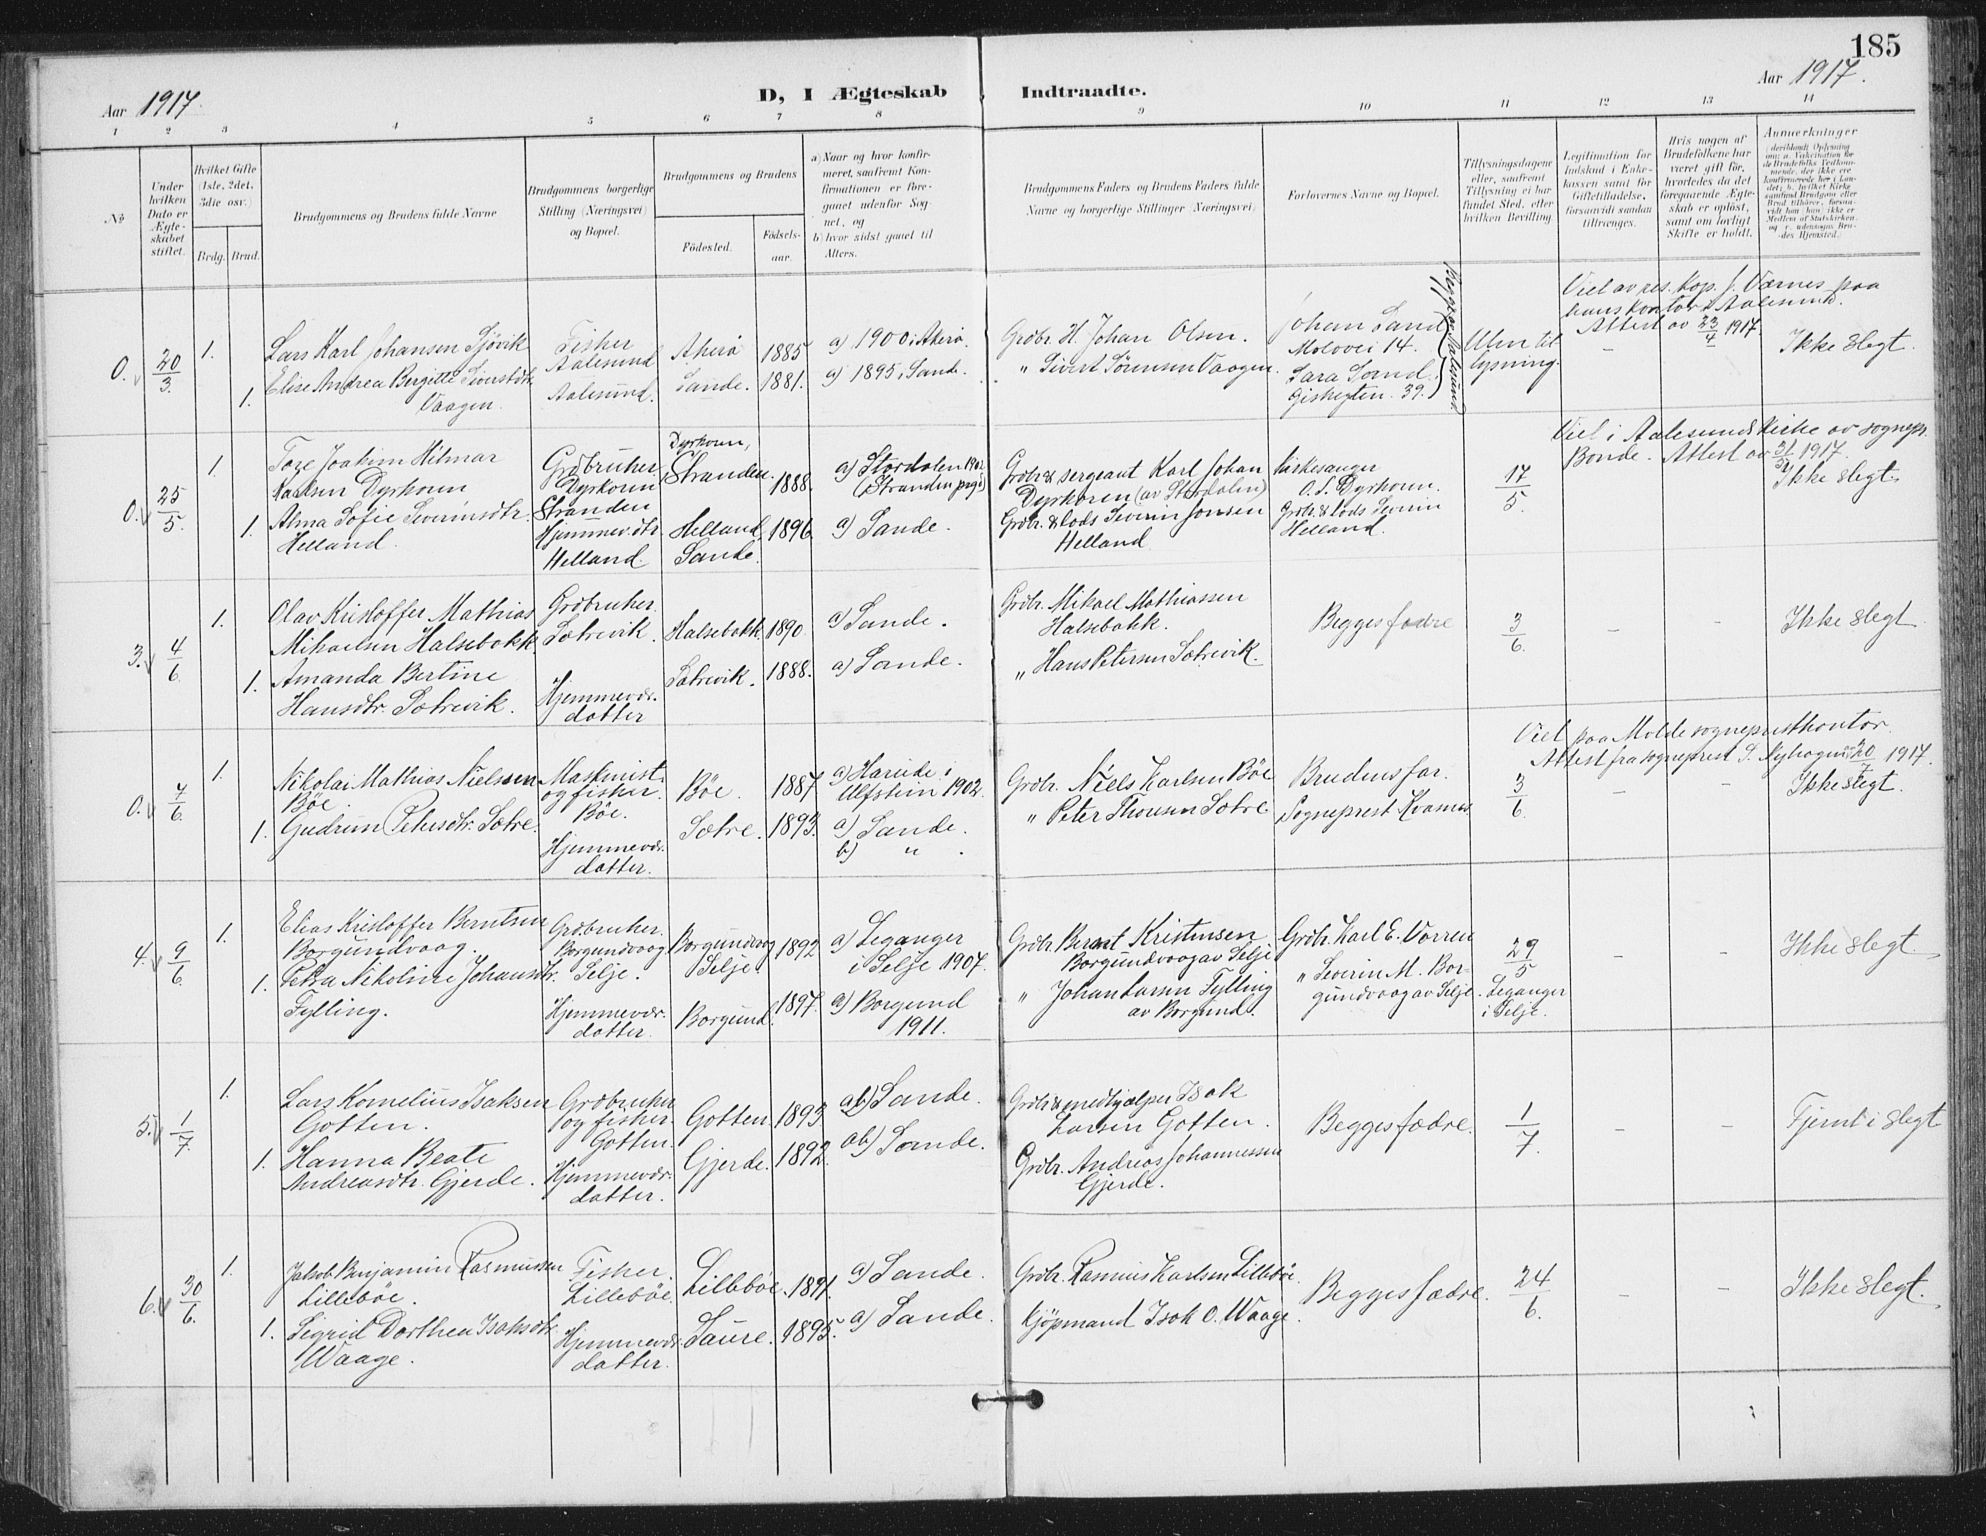 185
Aar 1917.
D, I Ægteskab Indtraadte.
Aar 1917.
1 2 3 4 5 6 7 8 9 10 11 12 13 14
No
Under hvilken Dato er Ægteskabet stiftet.
Hvilket Gifte (1ste, 2det, 3die osv.)
Brdg. Brud.
Brudgommens og Brudens fulde Navne
Brudgommens borgerlige Stilling (Næringsvei) og Bopæl.
Brudgommens og Brudens
Födested.
Födselsaar.
a) Naar og hvor konfirmeret, saafremt Konfirmationen er foregaaet udenfor Sognet, og
b) hvor sidst gaaet til Alters.
Brudgommens Faders og Brudens Faders fulde Navne og borgerlige Stillinger (Næringsvei)
Forlovernes Navne og Bopæl.
Tillysningsdagene eller, saafremt Tillysning ei har fundet Sted, efter hvilken Bevilling
Legitimation for Indskud i Enkekassen samt for Giftetilladelse, forsaavidt saadan tiltrænges.
Hvis nogen af Brudefolkene har været gift för, hvorledes da det foregaaende Ægteskab er oplöst, samt om lovligt Skifte er holdt.
Anmærkninger
0. 20/3 1.
Lars Karl Johansen Sjövik
Fisker
Aalesund
Akerö 1885
a) 1900 i Akerö.
Grdbr. H. Johan Olsen.
Johan Sand
Molovei 14.
Uten til
lysning.
Viet av res. kap. J. Værnes paa
hans kontor i Aalesund.
Attest av 23/4 1917.
Ikke slegt.
1. Elise Andrea Bergitte Sivertsdtr.
Vaagen.
Aalesund.
Sande. 1881.
a) 1895 i Sande.
" Sivert Sörensen Vaagen.
Lara Sand
39.
Begge av Aalesund
0. 25/5 1.
Joakim Hilmar
Karlsen Dyrkorn
Grdbruker
Dyrkorn
Stranden
Dyrkorn,
Stranden. 1888.
a) Stordalen 1902
(Stranden prgj.)
Grdbr. & sergeant Karl Johan
Dyrkoren (av Stordalen)
Kirkesanger
O. S. Dyrkorn.
17/5.
Viet i Aalesunds kirke av sognepr.
Bonde. Attest av 1917.
Ikke slegt.
1. Alma Sofie Severinsdtr.
Helland.
Hjemmev. dtr.
Helland.
Helland,
Sande. 1896.
a) Sande.
Grdbr. & lods Severin Jonsen
Helland.
Grdbr. & lods Severin
Helland.
3. 4/6 1.
Olav Kristoffer Mathias
Mikaelsen Halsebakk
Grdbruker
Sætrevik.
Halsebakk. 1890.
a) Sande.
Grdbr. Mikael Mathiassen
Halsebakk.
Begges fædre
3/6.
Ikke slegt.
1. Amanda Bertine
Hansdtr. Sætrevik.
Hjemmevær.
datter
Sætrevik. 1888.
a) Sande.
" Hans Petersen Sætrevik.
0. 7/6 1.
Nikolai Mathias Nielssen
Böe.
Maskinist
og fisker.
Böe.
Böe. 1887.
a) Hareide i
Ulfstein 1902.
Grdbr. Niels Karlsen Böe
Brudens far.
3/6.
Viet paa Molde sogneprestkontor.
Attest fra sogneprest S. 20/7 1917.
Ikke slegt.
1. Gudrun Petersdtr. Sætre.
Hjemmevær.
datter.
Sætre. 1893.
a) Sande.
b) "
" Peter Thorsen Sætre.
Sogneprest Kvamm.
4. 9/6 1.
Elias Kristoffer Berntsen
Borgundvaag.
Grdbruker.
Borgundvaag
Selje.
Borgundvaag
Selje. 1892
a) Leganger
i Selje 1907.
Grdbr. Bernt Kristensen
Borgundvaag av Selje
Grdbr. Karl E. Vorren
29/5
Leganger
i Selje.
Ikke slegt
1. Petra Nikoline Johansdtr.
Fylling.
Hjemmevær.
datter.
Borgund. 1897.
a) Borgund
1911.
" Johan Larsen Fylling
av Borgund.
" Severin M. Borgundvaag av Selje.
5. 1/7. 1.
Lars Kornelius Isaksen
Gotten.
Grdbruker
og fisker.
Gotten.
Gotten. 1893.
ab) Sande.
Grdbr. & medhjælper Isak
Larsen Gotten.
Begges fædre.
1/7.
Fjernt i slegt
1. Hanna Beate
Andreasdtr. Gjerde.
Hjemmevær.
datter.
Gjerde. 1892.
ab) Sande.
Grdbr. Andreas Johannessen
Gjerde.
6. 30/6. 1.
Jakob Benjamin Rasmussen
Lilleböe.
Fisker.
Lilleböe.
Lilleböe. 1891.
a) Sande.
Grdbr. Rasmus Karlsen Lilleböe.
Begges fædre.
24/6.
Ikke slegt.
1. Sigrid Dorthea Isaksdtr.
Waage.
Hjemmevær.
datter.
Saure. 1895.
a) Sande.
Kjöpmand Isak O. Waage.